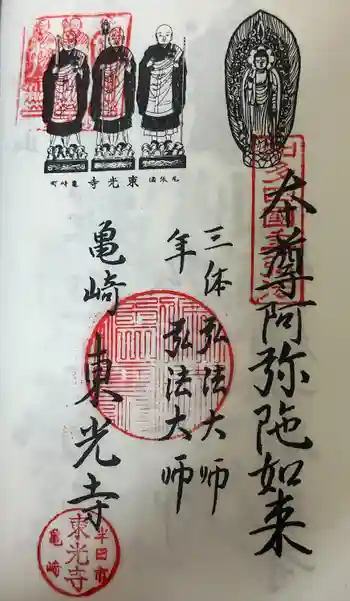 尾張国 東光寺 亀崎町
本尊阿弥陀如来
三体弘法大师
年弘法大师
亀崎東光寺
半田市
東光寺
亀崎